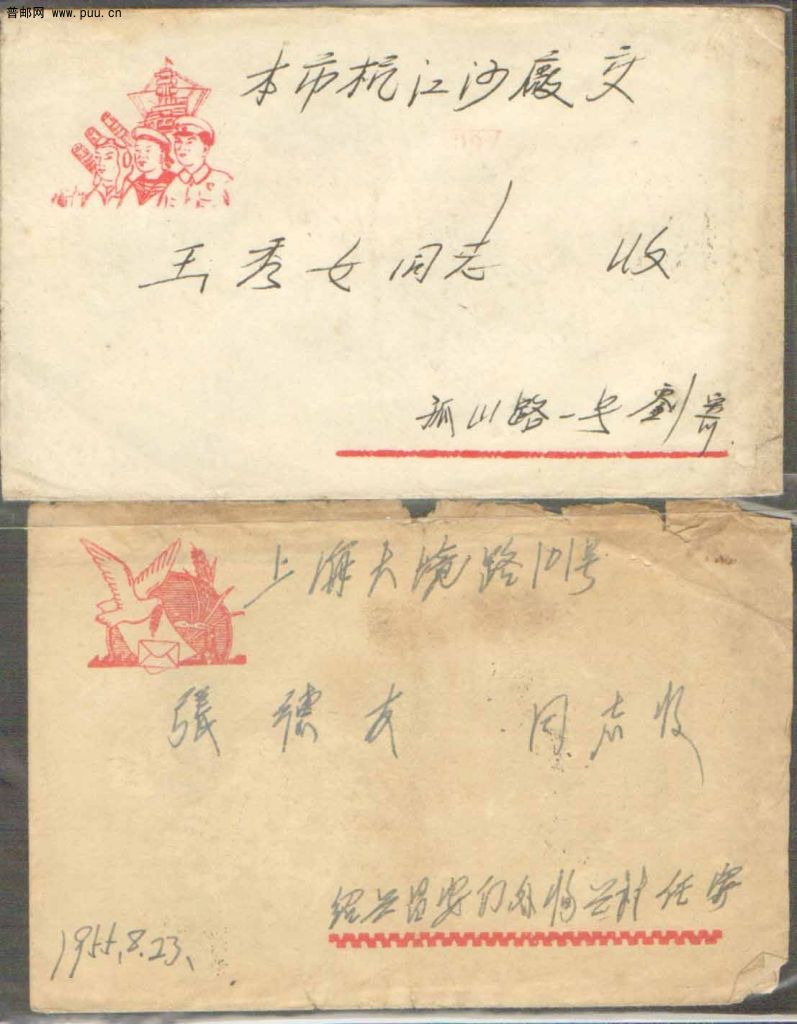 普邮网 www.puu.cn
本市杭江沙廠交
王秀女同志 收
孤山路一号劉寄
上海大境路101号
張德友 同志收
绍兴昌安门外 任寄
1955.8.23、